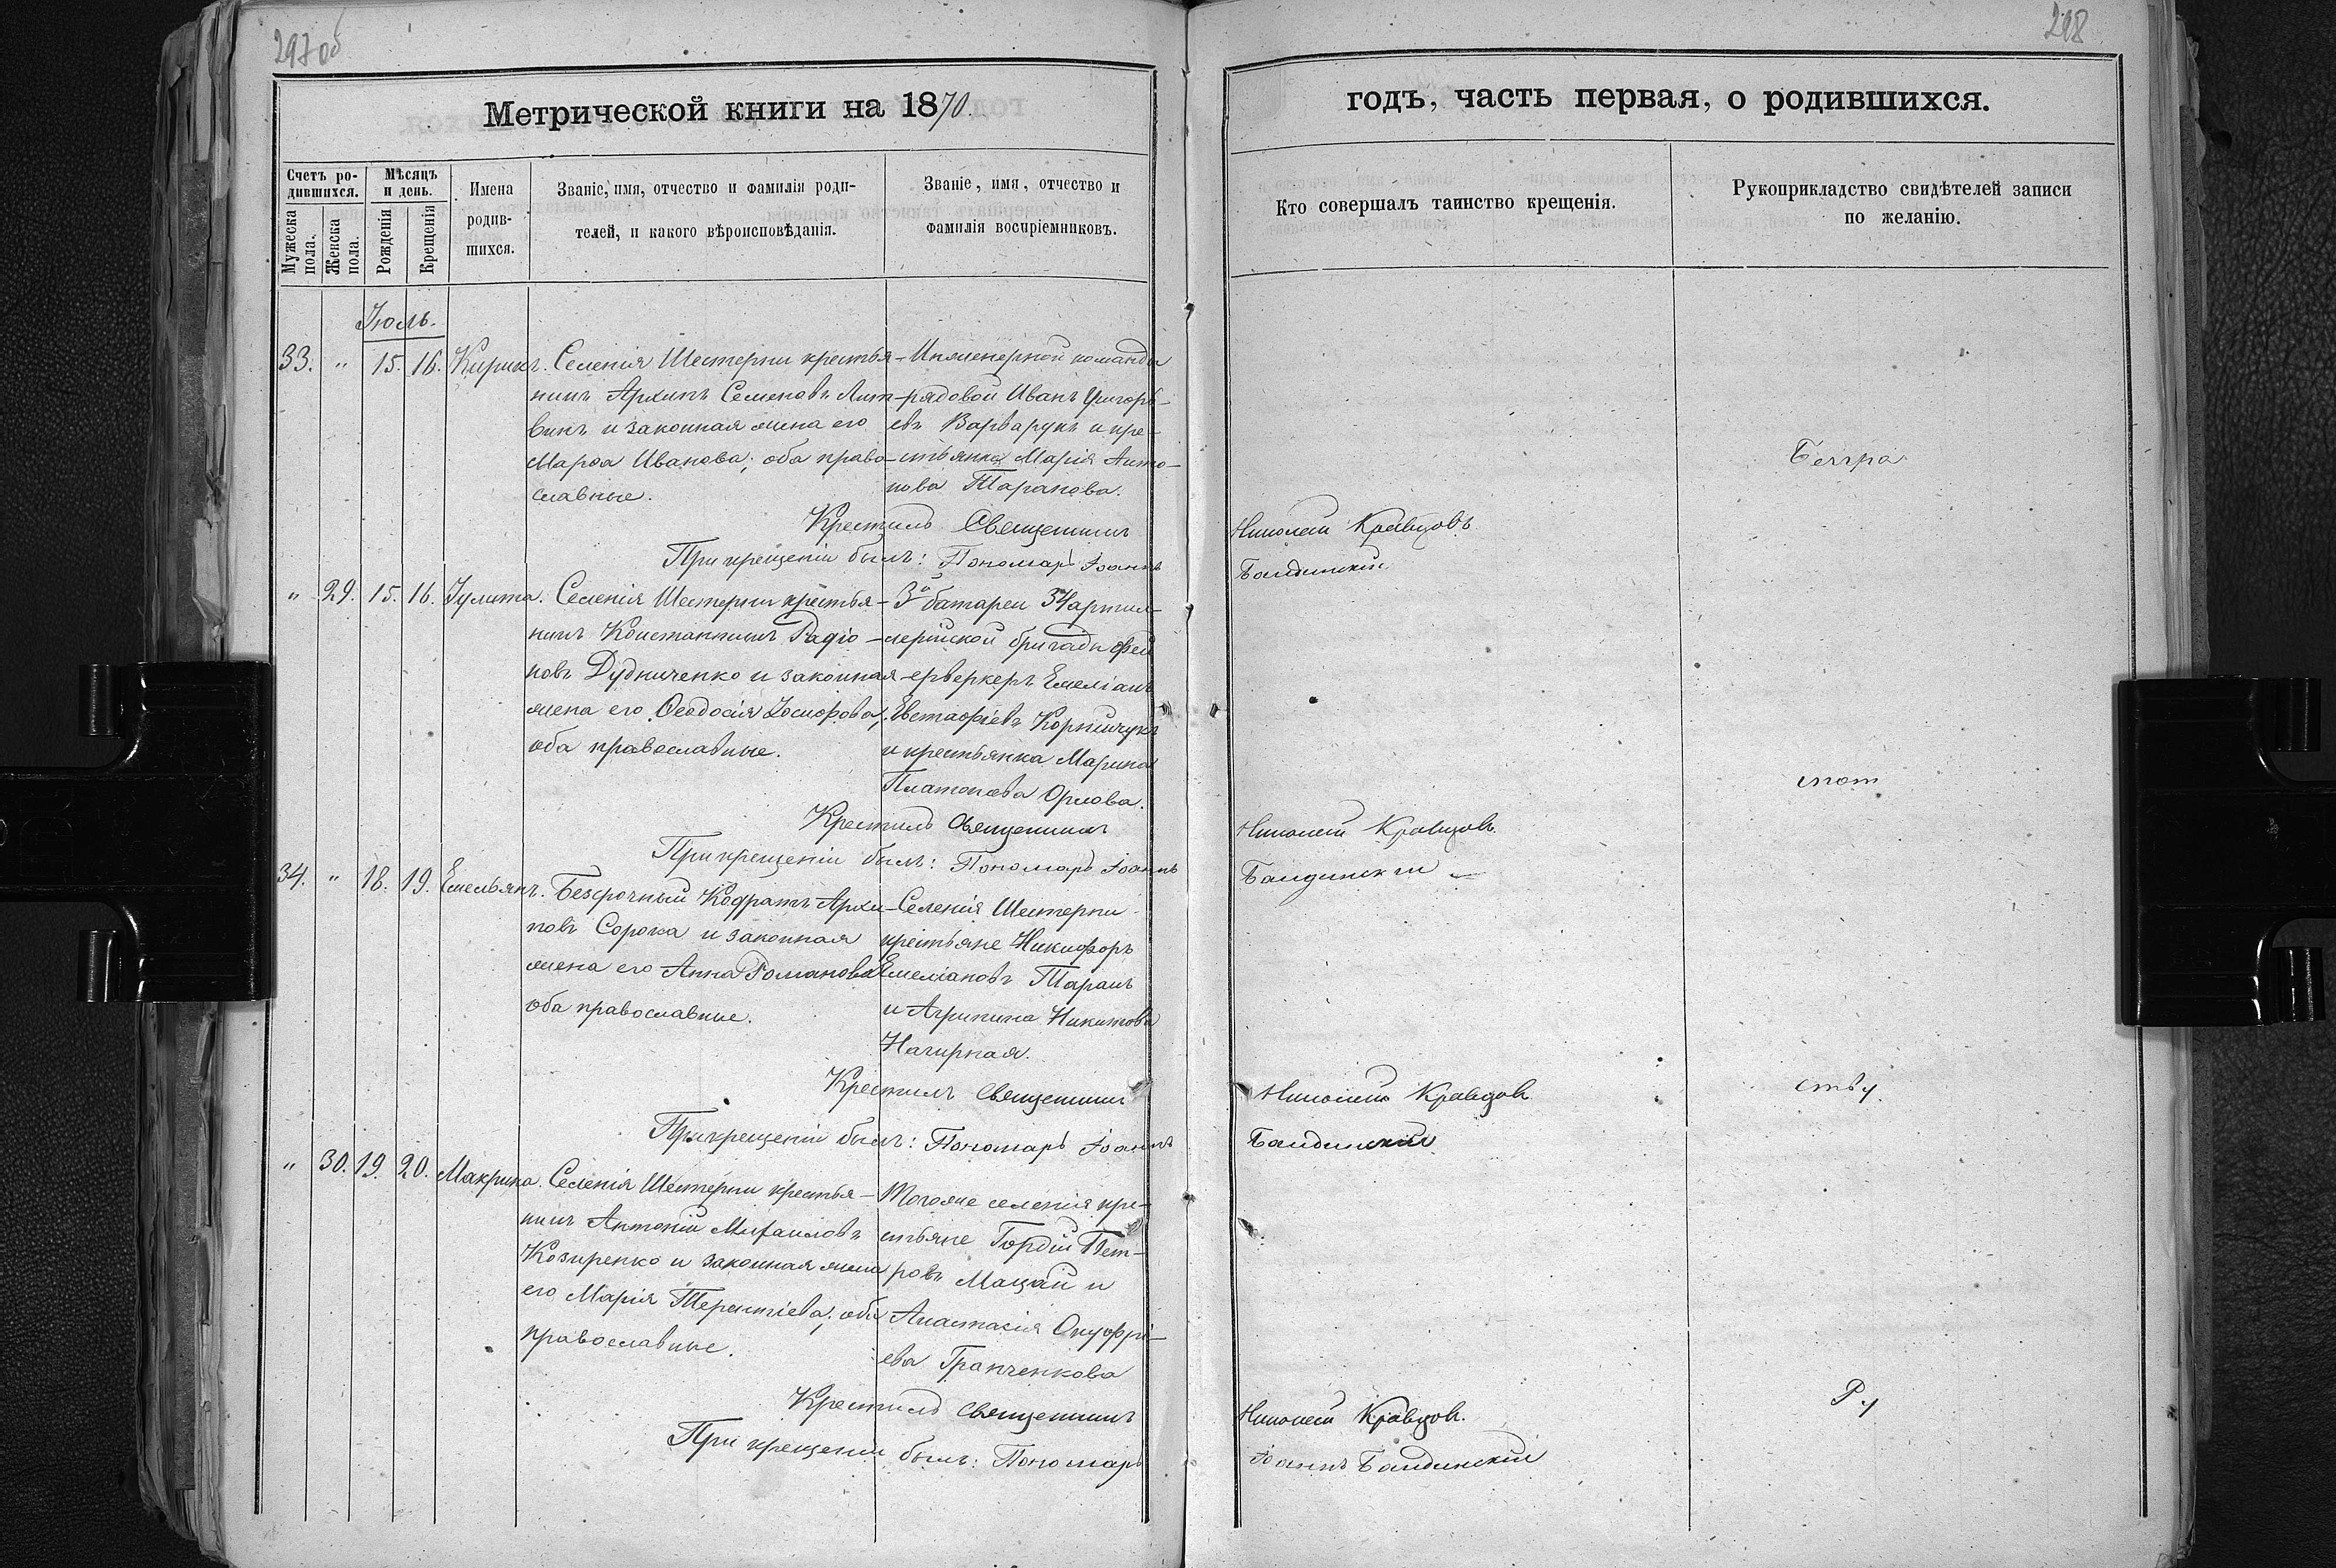 297об
298
Метрической книги на 1870.
годъ, часть первая, о родившихся.
Счетъ родившихся.
Мужеска пола.
Женска пола.
Мѣсяцъ и день.
Рожденія
Крещенія
Имена родившихся.
Званіе, имя, отчество и фамилія родителей, и какого вѣроисповѣданія.
Званіе, имя, отчество и фамилія воспріемниковъ.
Кто совершалъ таинство крещенія.
Рукоприкладство свидѣтелей записи по желанію.
Іюль.
33. " 15. 16. Кирикъ.
Селенія Шестерни крестья-
нинъ Архипъ Семеновъ Лит-
викъ и законная жена его
Марѳа Иванова; оба право-
славные.
Инженерной команды
рядовой Иванъ Григорь-
евъ Варварукъ и кре-
стьянка Марія Анто-
нова Таранова.
Крестилъ Священникъ
Николай Кравцовъ
При крещеніи былъ: Пономарь Іоаннъ
Бандинскій
" 29. 15. 16. Іулита.
Селенія Шестерни крестья-
нинъ Константинъ Радіо-
новъ Дудниченко и законная
жена его Ѳеодосія Іосифова,
оба православные.
3й батареи 34 артил-
лерійской бригады фей-
ерверкеръ Емеліанъ
Евстафіевъ Корнійчукъ
и крестьянка Марина
Платонова Орлова.
Крестилъ Священникъ
Николай Кравцовъ.
При крещеніи былъ: Пономарь Іоаннъ
Бандинскій
34. " 18. 19. Емельянъ.
Безсрочный Кодратъ Архи-
повъ Сорока и законная
жена его Анна Романова
оба православные.
Селенія Шестерни
крестьяне Никифоръ
Емеліановъ Таранъ
и Агрипина Никитова
Нагирная.
Крестилъ Священникъ
Николай Кравцовъ
При крещеніи былъ: Пономарь Іоаннъ
Бандинскій
" 30. 19. 20. Макрина.
Селенія Шестерни крестья-
нинъ Антоній Михаиловъ
Козиренко и законная жена
его Марія Терентіева, оба
православные.
Тогоже селенія кре-
стьяне Гордій Пет-
ровъ Мацай и
Анастасія Онуфрі-
ева Гранченкова
Крестилъ Священникъ
Николай Кравцовъ.
При крещеніи былъ: Пономарь
Іоаннъ Бандинскій
ству
Ру